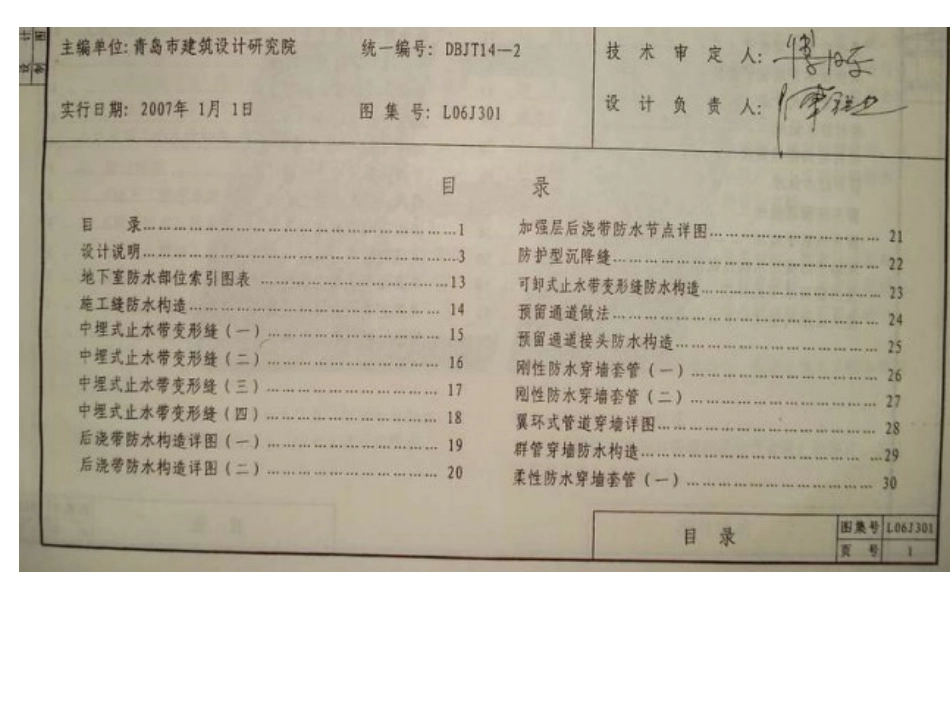 主编单位: 青岛市建筑设计研究院 统一编号: DBJT14—2
技 术 审 定 人:
实行日期: 2007年 1月 1日 图 集 号: L06J301
设 计 负 责 人:
目 录
目 录……………………………………1
设计说明……………………………………3
地下室防水部位索引图表 ……………………13
施工缝防水构造…………………………… 14
中埋式止水带变形缝(一)………………… 15
中埋式止水带变形缝(二)………………… 16
中埋式止水带变形缝(三)………………… 17
中埋式止水带变形缝(四)………………… 18
后浇带防水构造详图(一)………………… 19
后浇带防水构造详图(二)………………… 20
加强层后浇带防水节点详图………………… 21
防护型沉降缝……………………………… 22
可卸式止水带变形缝防水构造……………… 23
预留通道做法……………………………… 24
预留通道接头防水构造…………………… 25
刚性防水穿墙套管(一)………………… 26
刚性防水穿墙套管(二)………………… 27
翼环式管道穿墙详图……………………… 28
群管穿墙防水构造………………………… …29
柔性防水穿墙套管(一)………………… 30
目 录
图集号 L06J301
页 号 1